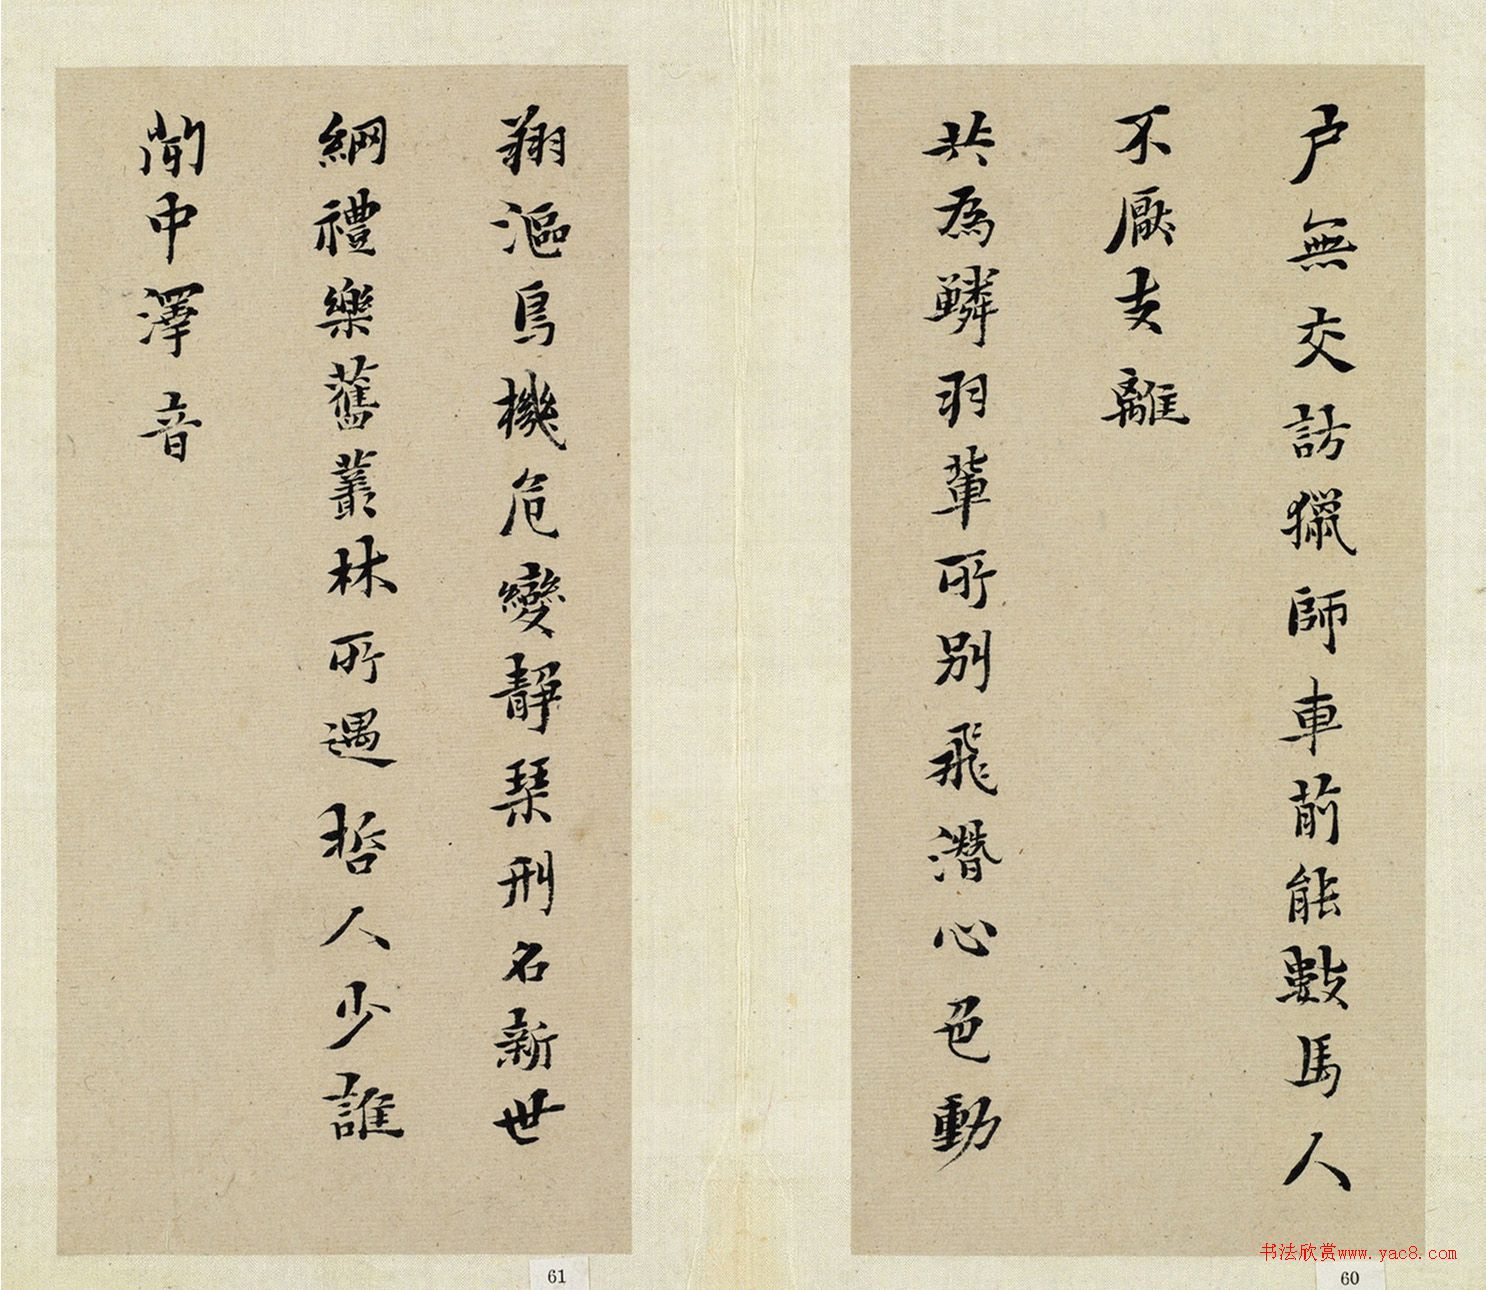 户無交訪獵師車前能數馬人
不厭支離
共為鱗羽軰所別飛潛心色動
翔漚鳥機危變靜琹刑名新世
網禮樂舊叢林所遇哲人少誰
閒中澤音
60
61
书法欣赏www.yac8.com